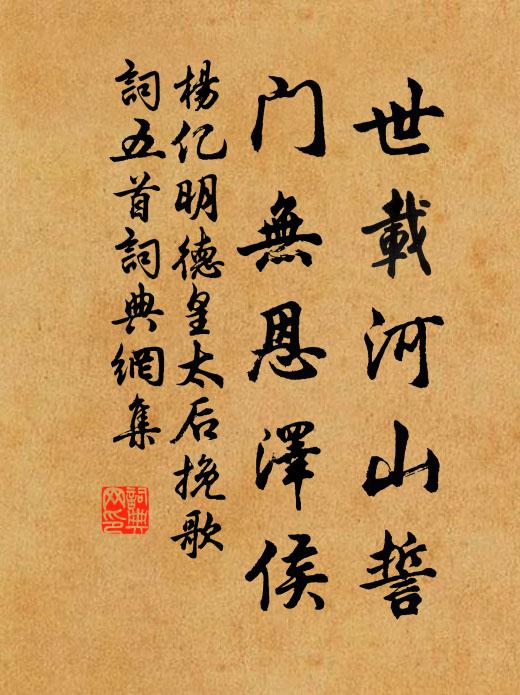 世載河山誓
门無恩澤侯
楊亿明德皇太后挽歌
詞五首詞典網集
詞典网印